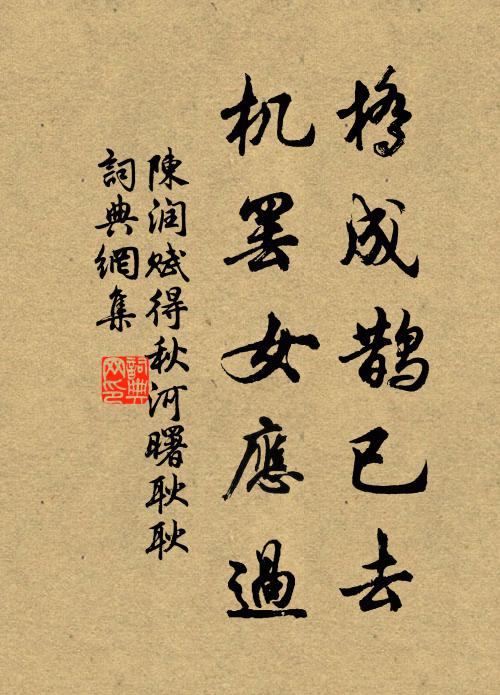 橋成鹊已去
机罢女應過
陳润赋得秋河曙耿耿
詞典網集
詞典
网印